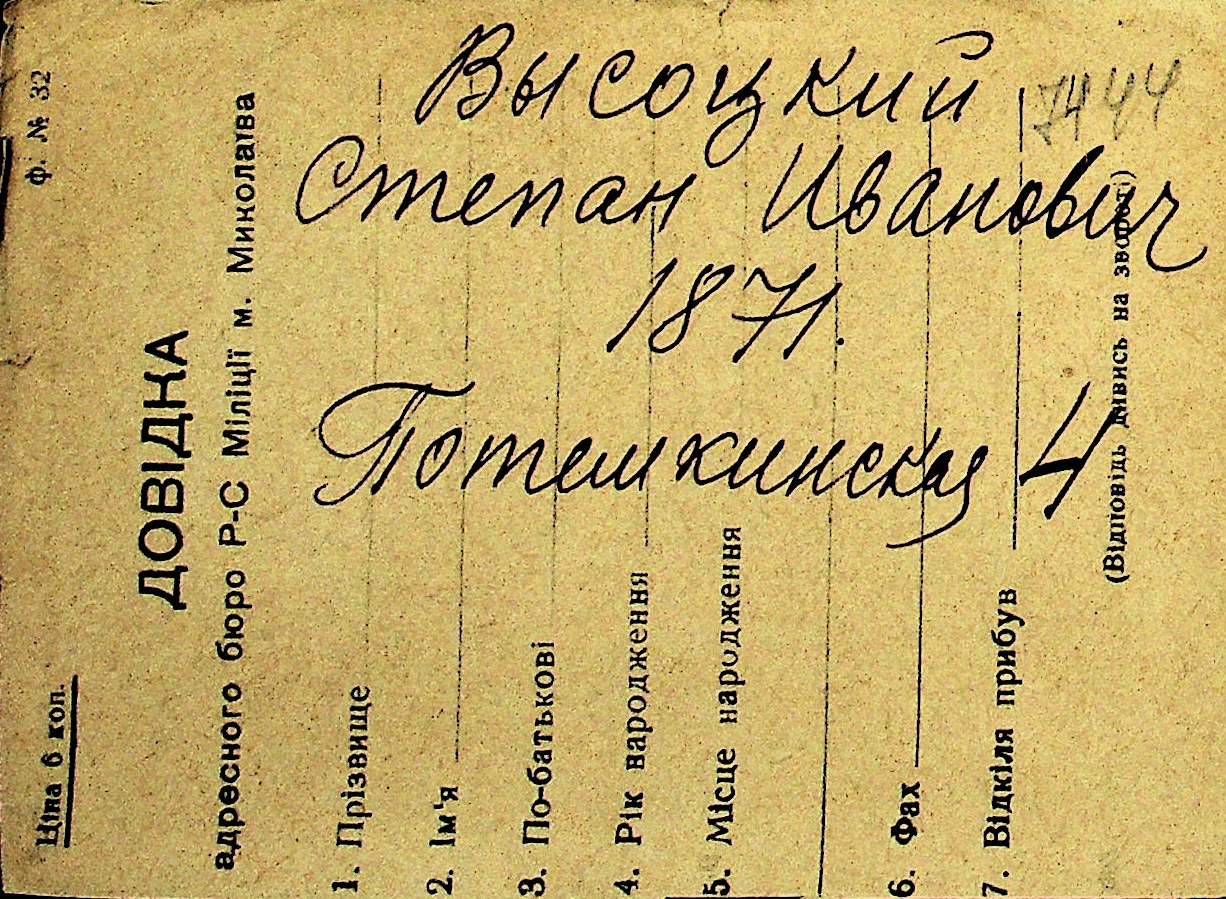 Высоцкий
7444
Степан Иванович
1871.
Потемкинская 4
Ціна 6 коп.
ф. № 32
ДОВІДКА
адресного бюро Р-С Міліції м. Миколаїва
1. Прізвище
2. Ім'я
3. По-батькові
4. Рік народження
5. Місце народження
6. Фах
7. Відкіля прибув
(Відповідь дивись на звороті)